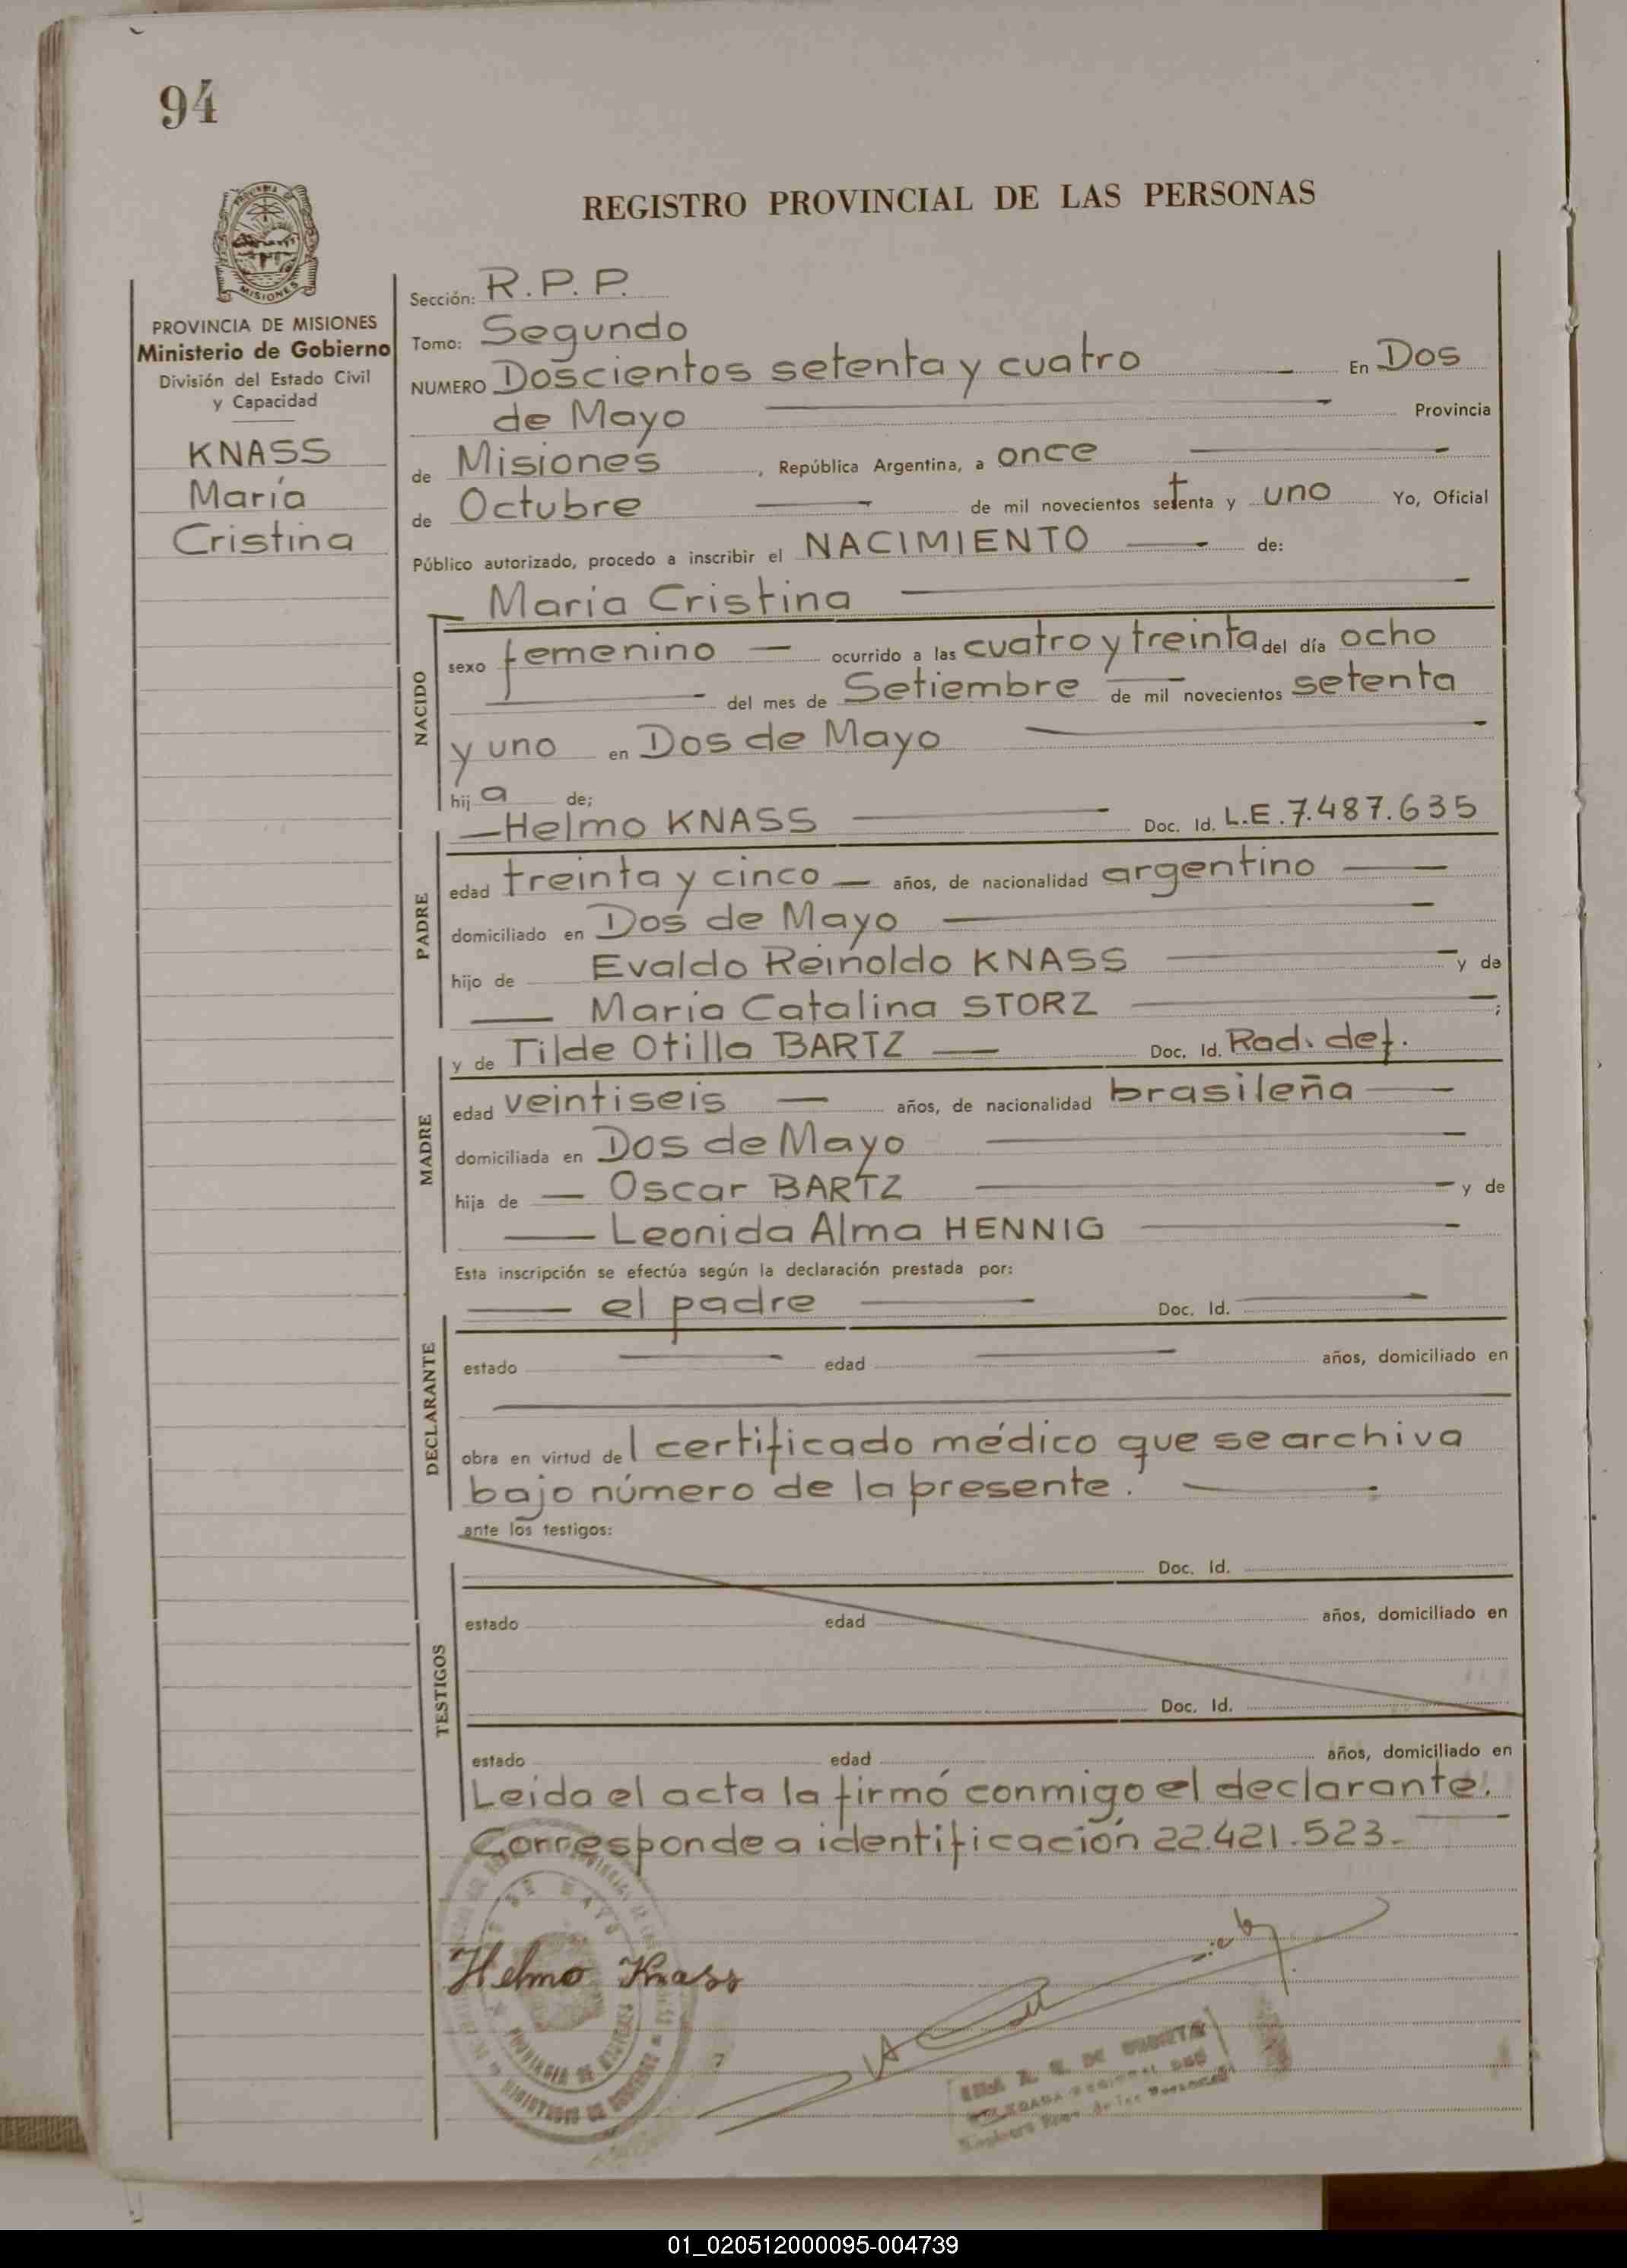 94
REGISTRO PROVINCIAL DE LAS PERSONAS
MISIONES
PROVINCIA DE MISIONES
Ministerio de Gobierno
División del Estado Civil
y Capacidad
KNASS
María
Cristina
Sección: R.P.P.
Tomo: Segundo
NUMERO Doscientos setenta y cuatro En Dos
de Mayo Provincia
de Misiones, República Argentina, a once
de Octubre de mil novecientos setenta y uno Yo, Oficial
Público autorizado, procedo a inscribir el NACIMIENTO de:
María Cristina
NACIDO
sexo femenino ocurrido a las cuatro y treinta del día ocho
del mes de Setiembre de mil novecientos setenta
y uno en Dos de Mayo
hija de;
Helmo KNASS Doc. Id. L.E. 7.487.635
PADRE
edad treinta y cinco años, de nacionalidad argentino
domiciliado en Dos de Mayo
hijo de Evaldo Reinoldo KNASS y de
María Catalina STORZ ;
y de Tilde Otilla BARTZ Doc. Id. Rad. def.
MADRE
edad veintiseis años, de nacionalidad brasileña
domiciliada en Dos de Mayo
hija de Oscar BARTZ y de
Leonida Alma HENNIG
Esta inscripción se efectúa según la declaración prestada por:
el padre Doc. Id.
DECLARANTE
estado edad años, domiciliado en
obra en virtud del certificado médico que se archiva
bajo número de la presente.
ante los testigos:
Doc. Id.
TESTIGOS
estado edad años, domiciliado en
Doc. Id.
estado edad años, domiciliado en
Leída el acta la firmó conmigo el declarante.
Corresponde a identificación 22.421.523.
Helmo Knass
01_020512000095-004739